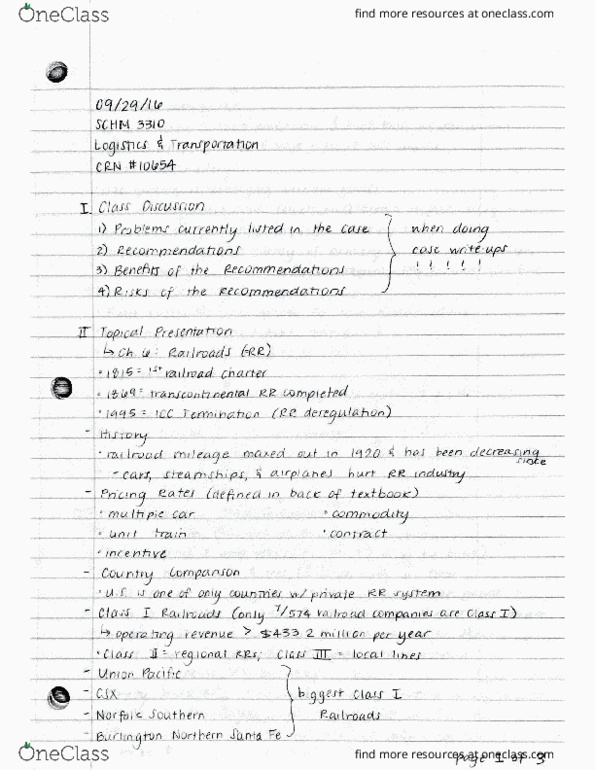 OneClass
find more resources at oneclass.com
09/29/16
SCHM 3310
Logistics & Transportation
CRN #10654
I Class Discussion
1) Problems currently listed in the case
2) Recommendations
3) Benefits of the Recommendations
4) Risks of the Recommendations
when doing
case write-ups
! ! ! ! !
II Topical Presentation
↳ Ch. 6: Railroads (RR)
• 1815 = 1st railroad charter
• 1869 = transcontinental RR completed
• 1995 = ICC Termination (RR deregulation)
- History
• railroad mileage maxed out in 1920 & has been decreasing
since
- cars, steamships, & airplanes hurt RR industry
- Pricing Rates (defined in back of textbook)
• multiple car • commodity
• unit train • contract
• incentive
- Country Comparison
• U.S. is one of only countries w/ private RR system
- Class I Railroads (only 7/574 railroad companies are Class I)
↳ operating revenue > $433.2 million per year
• Class II = regional RRs; Class III = local lines
- Union Pacific
- CSX
- Norfolk Southern
- Burlington Northern Santa Fe
biggest Class I
Railroads
page 1 of 3
OneClass
find more resources at oneclass.com